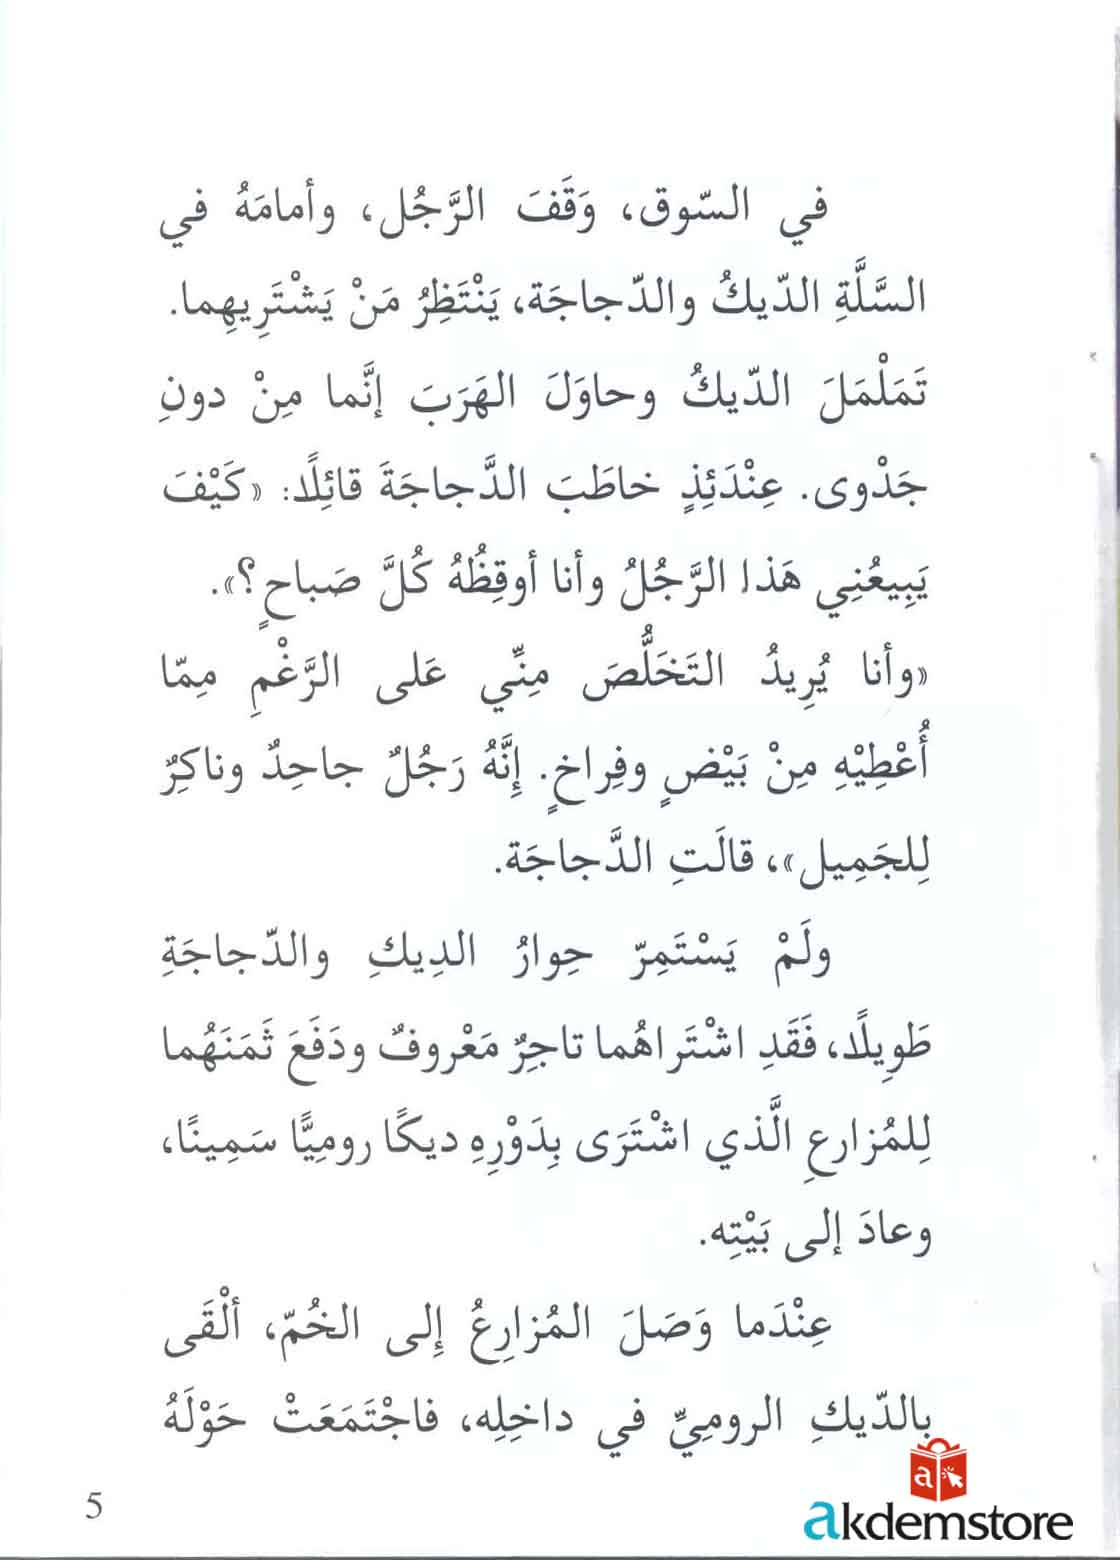 في السّوق، وَقَفَ الرَّجُل، وأمامَهُ في
السَّلَّةِ الدّيكُ والدّجاجَة، يَنْتَظِرُ مَنْ يَشْتَرِيهِما.
تَمَلْمَلَ الدّيكُ وحاوَلَ الهَرَبَ إنَّما مِنْ دونِ
جَدْوى. عِنْدَئِذٍ خاطَبَ الدَّجاجَةَ قائِلًا: «كَيْفَ
يَبِيعُنِي هَذا الرَّجُلُ وأنا أوقِظُهُ كُلَّ صَباحٍ؟».
«وأنا يُرِيدُ التَخَلُّصَ مِنِّي عَلى الرَّغْمِ مِمّا
أُعْطِيْهِ مِنْ بَيْضٍ وفِراخٍ. إِنَّهُ رَجُلٌ جاحِدٌ وناكِرٌ
لِلجَمِيل»، قالَتِ الدَّجاجَة.
ولَمْ يَسْتَمِرّ حِوارُ الدِيكِ والدّجاجَةِ
طَوِيلًا، فَقَدِ اشْتَراهُما تاجِرٌ مَعْروفٌ ودَفَعَ ثَمَنَهُما
لِلمُزارِعِ الَّذي اشْتَرَى بِدَوْرِهِ ديكًا رومِيًّا سَمِينًا،
وعادَ إلى بَيْتِه.
عِنْدَما وَصَلَ المُزارِعُ إِلى الخُمّ، ألْقَى
بالدّيكِ الرومِيِّ في داخِلِه، فاجْتَمَعَتْ حَوْلَهُ
5
a
akdemstore